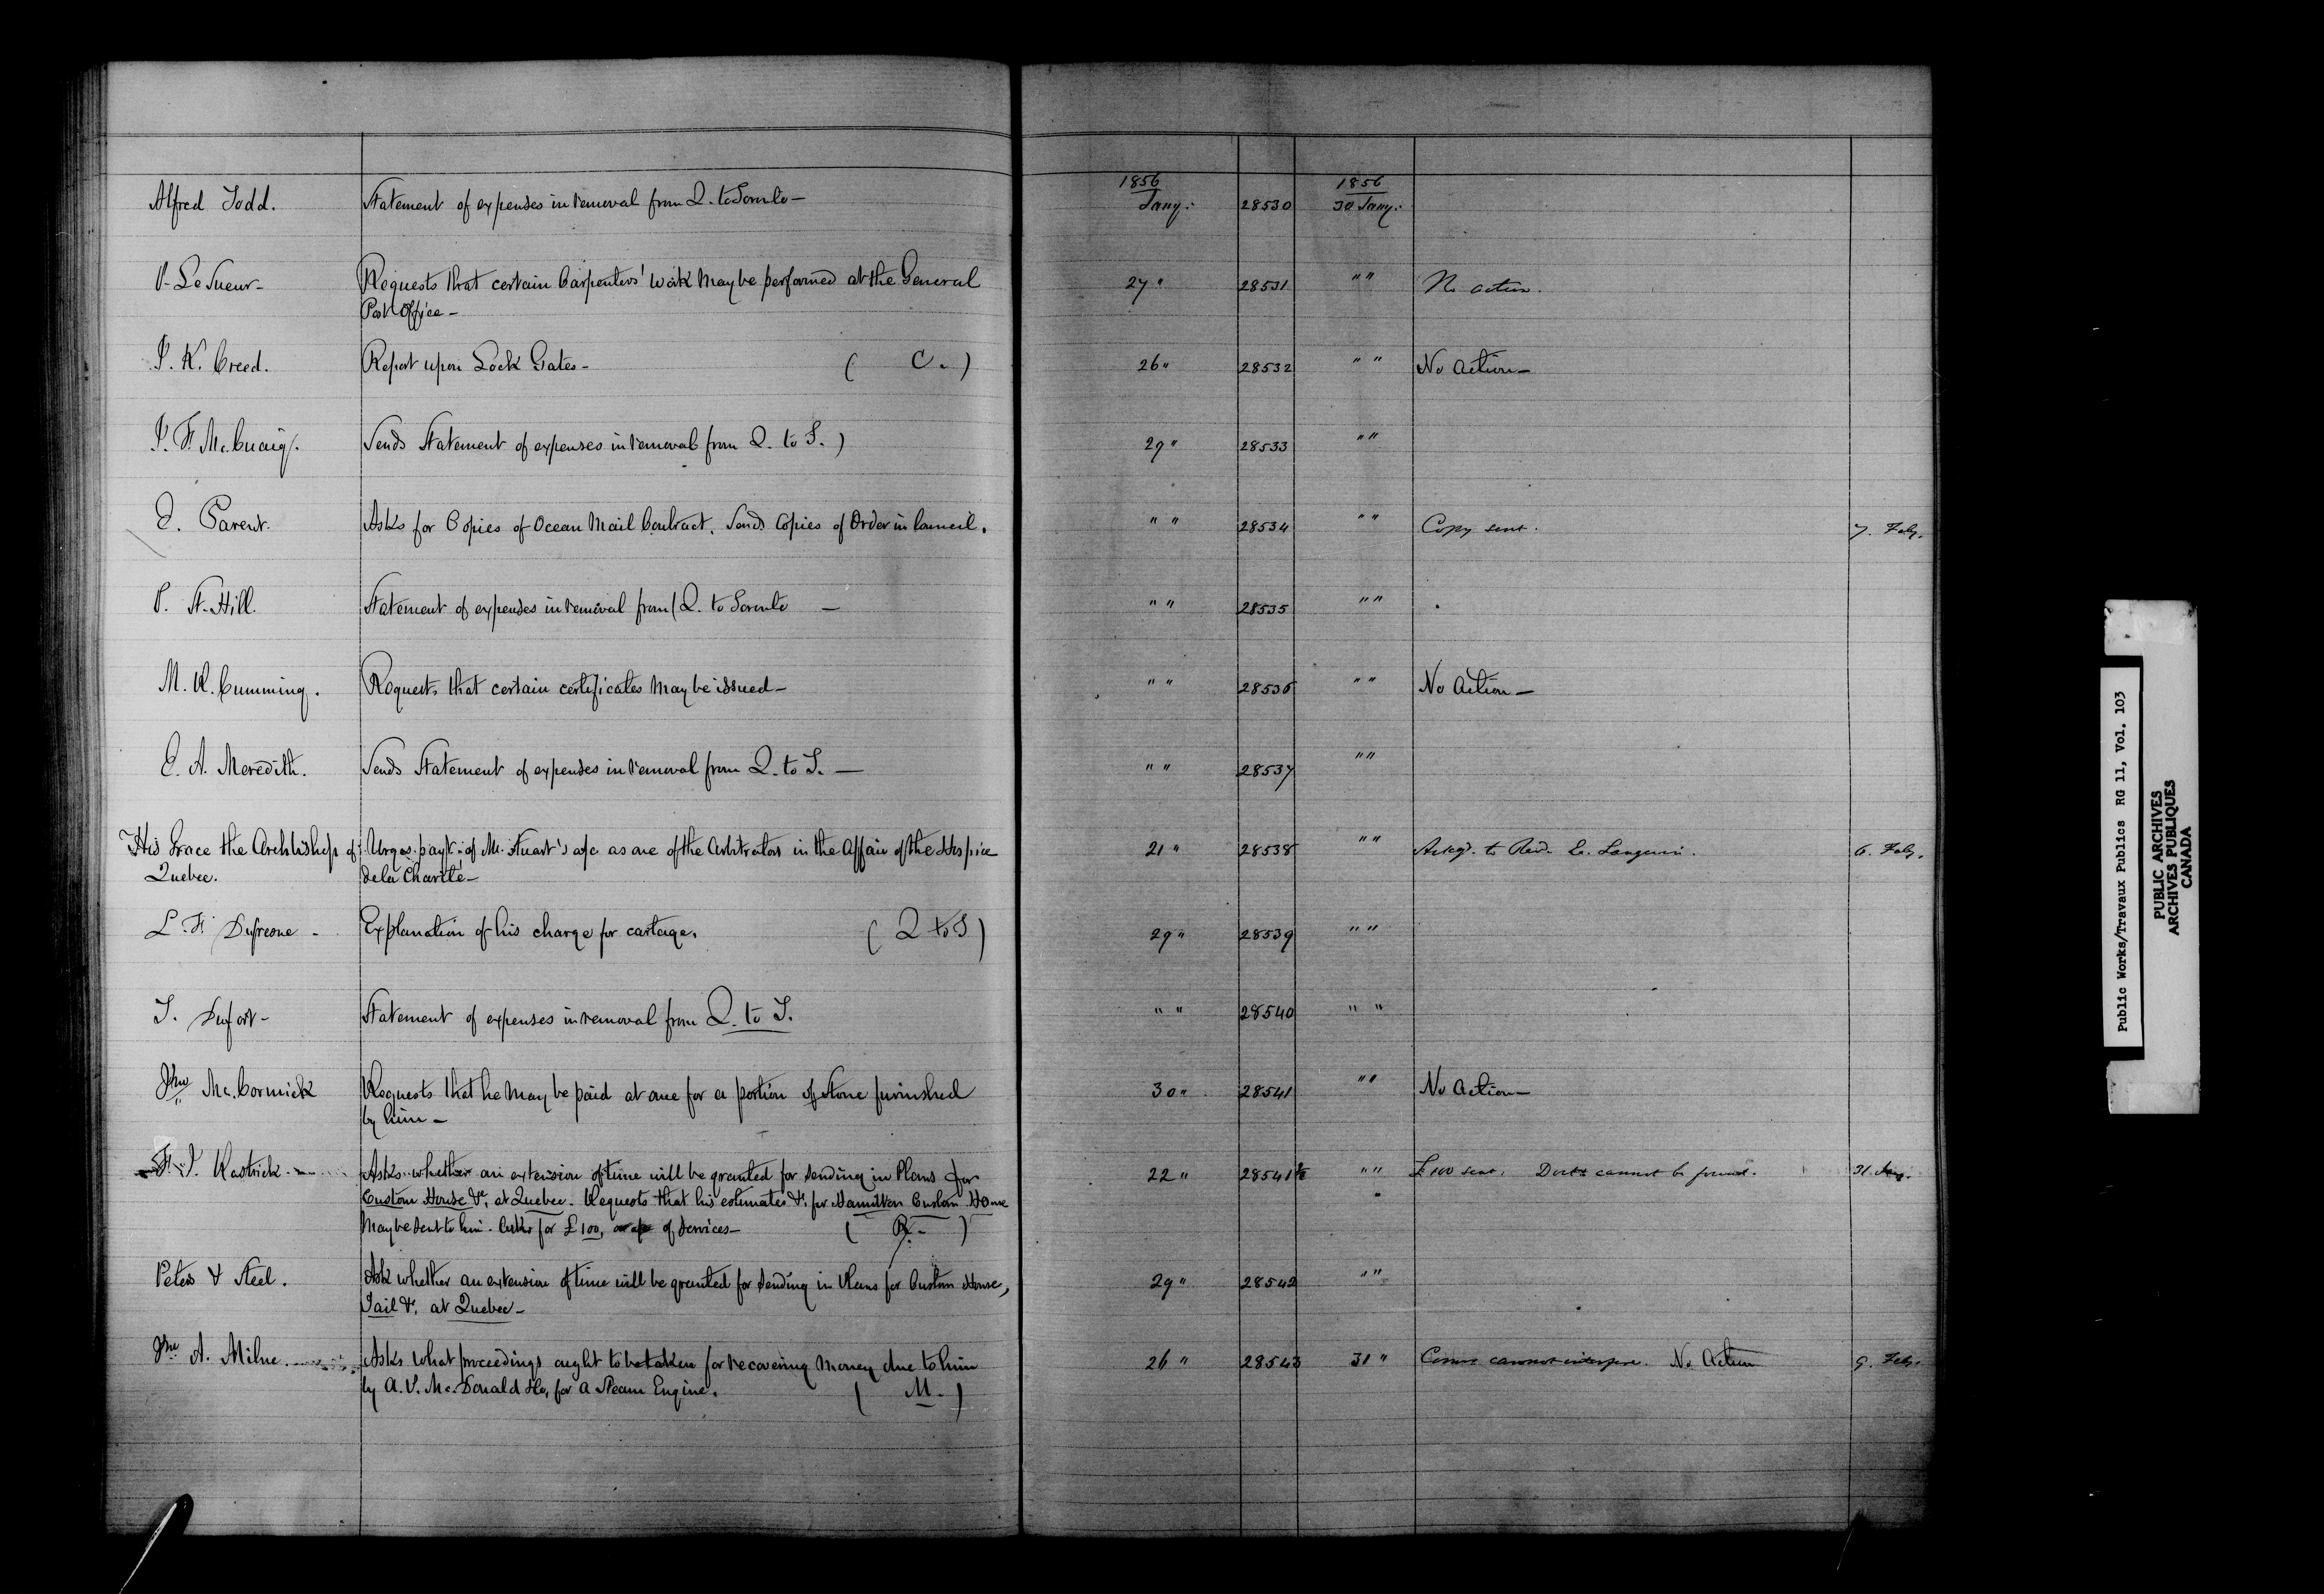 1856 1856
Alfred Todd. Statement of expenses in removal from Q. to Toronto — Jany. 28530 30 Jany.
P. Le Sueur — Requests that certain Carpenters' work may be performed at the General 27 " 28531 " " No action.
Post Office —
P. K. Creed. Report upon Lock Gates — ( C. ) 26 " 28532 " " No Action —
P. F. McCuaig. Sends Statement of expenses in removal from Q. to T. ) 29 " 28533 " "
E. Parent. Asks for Copies of Ocean Mail Contract. Sends Copies of Order in Council. " " 28534 " " Copy sent. 7. Feby.
P. St. Hill. Statement of expenses in removal from ( Q. to Toronto — " " 28535 " "
M. R. Cumming. Requests that certain certificates may be issued — " " 28536 " " No Action —
E. A. Meredith. Sends Statement of expenses in removal from Q. to T. — " " 28537 " "
His Grace the Archbishop of Urges payt. of Mr. Stuart's a/c as one of the Arbitrators in the Affair of the Hospice 21 " 28538 " " Ackgd. to Revd. E. Langevin. 6. Feby.
Quebec. de la Charité —
L. F. Dufresne — Explanation of his charge for cartage. ( Q to T ) 29 " 28539 " "
T. Dufort — Statement of expenses in removal from Q. to T. " " 28540 " "
Jno McCormick Requests that he may be paid at once for a portion of Stone furnished 30 " 28541 " " No Action —
by him —
F. J. Rastrick Asks whether an extension of time will be granted for sending in Plans for 22 " 28541½ " " £100 sent. Docts cannot be found. 31.
Custom House &c, at Quebec. Requests that his estimates &c, for Hamilton Custom House
may be sent to him. Asks for £100, of services — ( R. )
Peters & Steel. Ask whether an extension of time will be granted for sending in Plans for Custom House, 29 " 28542 " "
Jail &c, at Quebec —
Jno A. Milne. Asks what proceedings ought to be taken for recovering money due to him 26 " 28543 31 " Comrs cannot interfere. No Action 9. Feby.
by A. P. McDonald &Co, for a Steam Engine. ( M. )
Public Works/Travaux Publics RG 11, Vol. 103
PUBLIC ARCHIVES
ARCHIVES PUBLIQUES
CANADA